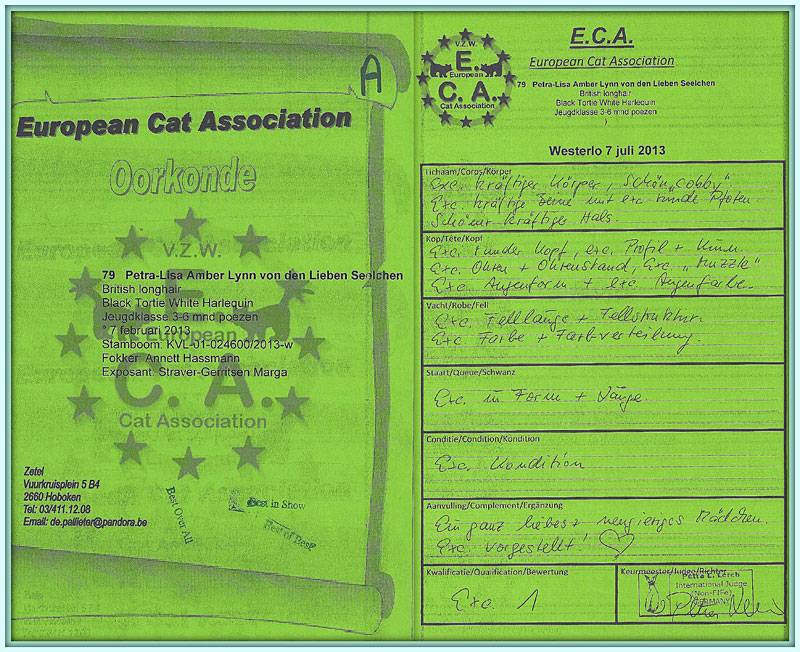 A
European Cat Association
Oorkonde
V.Z.W.
79 Petra-Lisa Amber Lynn von den Lieben Seelchen
British longhair
Black Tortie White Harlequin
Jeugdklasse 3-6 mnd poezen
° 7 februari 2013
Stamboom: KVL-01-024600/2013-w
Fokker: Annett Hassmann
Exposant: Straver-Gerritsen Marga
E.
European
C. A.
Cat Association
Zetel
Vuurkruisplein 5 B4
2660 Hoboken
Tel: 03/411.12.08
Email: de.pallieter@pandora.be
Best Over All
Best in Show
Best of Best
V.Z.W.
E.
European
C. A.
Cat Association
E.C.A.
European Cat Association
79 Petra-Lisa Amber Lynn von den Lieben Seelchen
British longhair
Black Tortie White Harlequin
Jeugdklasse 3-6 mnd poezen
)
Westerlo 7 juli 2013
Lichaam/Corps/Körper
Exc. kräftiger Körper, schön "cobby"
Exc kräftige Beine mit exc runde Pfoten.
Schöner kräftiger Hals.
Kop/Tête/Kopf
Exc. runder Kopf, exc. Profil + Kinn.
Exc. Ohren + Ohrenstand, Exc. "Muzzle"
Exc. Augenform + exc. Augenfarbe.
Vacht/Robe/Fell
Exc. Felllänge + Fellstruktur.
Exc Farbe + Farbverteilung.
Staart/Queue/Schwanz
Exc. in Form + Länge.
Conditie/Condition/Kondition
Exc. Kondition
Aanvulling/Complement/Ergänzung
Ein ganz liebes + neugieriges Mädchen.
Exc. vorgestellt!
Kwalificatie/Qualification/Bewertung
Exc. 1
Keurmeester/Judge/Richter
Petra E. Lerch
International Judge
(Non-FIFe)
GERMANY